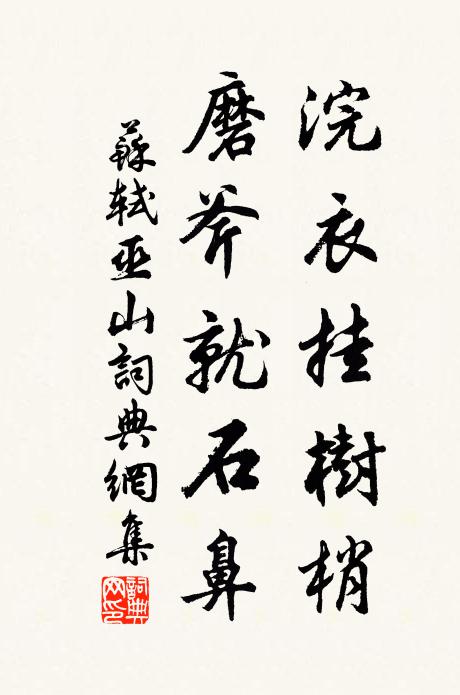 浣衣挂樹梢
磨斧就石鼻
蘇軾巫山詞典網集
詞典網印